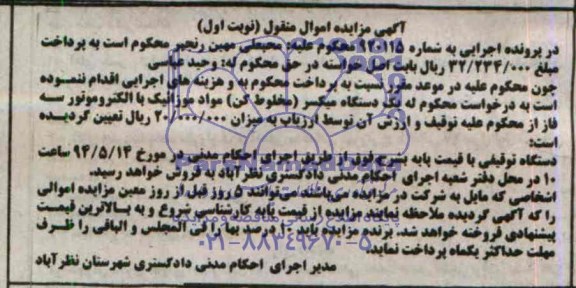 آگهی مزایده اموال منقول (نوبت اول)
در پرونده اجرایی به شماره ۹۲۰۱۱۵ محکوم علیه: محبعلی مهین رنجبر محکوم است به پرداخت
مبلغ ۳۲/۲۳۴/۰۰۰ ریال بابت اصل در حق محکوم له: وحید عباسی
چون محکوم علیه در موعد مقرر نسبت به پرداخت محکوم به و هزینه های اجرایی اقدام ننمـوده
است به درخواست محکوم له یک دستگاه میکسر (مخلوط کن) مواد موزائیک با الکتروموتور سـه
فاز از محکوم علیه توقیف و ارزش آن توسط ارزیاب به میزان ۲۰/۰۰۰/۰۰۰ ریال تعیین گردیـده
است:
دستگاه توقیفی با قیمت پایه بشرح فوق از طریق اجرای احکام مدنـی در مورخ ۹۴/۵/۱۴ ساعت
۱۰ در محل دفتر شعبه اجرای احکام مدنی دادگستری نظرآباد به فروش خواهد رسید.
اشخاصی که مایل به شرکت در مزایده می باشند می توانند ۵ روز قبل از روز معین مزایده اموالی
را که آگهی گردیده ملاحظه نمایند مزایده از قیمت پایه کارشناسی شروع و به بـالاترین قیمـت
پیشنهادی فروخته خواهد شد. برنده مزایده باید ۱۰ درصد بها را فی المجلس و الباقی را ظـرف
مهلت حداکثر یکماه پرداخت نماید.
۰۲۱-۸۸۳۴۹۶۷۰-۵
مدیر اجرای احکام مدنی دادگستری شهرستان نظرآباد